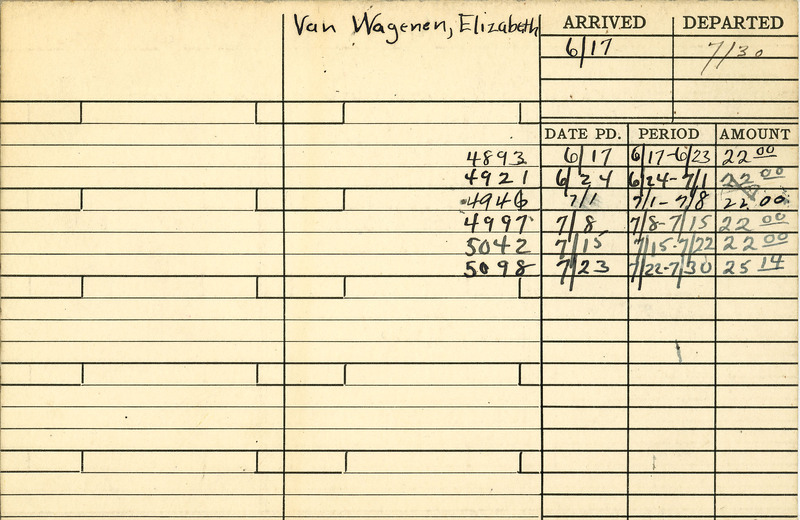 Van Wagenen, Elizabeth ARRIVED DEPARTED
6/17 7/30
DATE PD. PERIOD AMOUNT
4893 6/17 6/17-6/23 22 00
4921 6/24 6/24-7/1 22 00
4946 7/1 7/1-7/8 22 00
4997 7/8 7/8-7/15 22 00
5042 7/15 7/15-7/22 22 00
5098 7/23 7/22-7/30 25 14